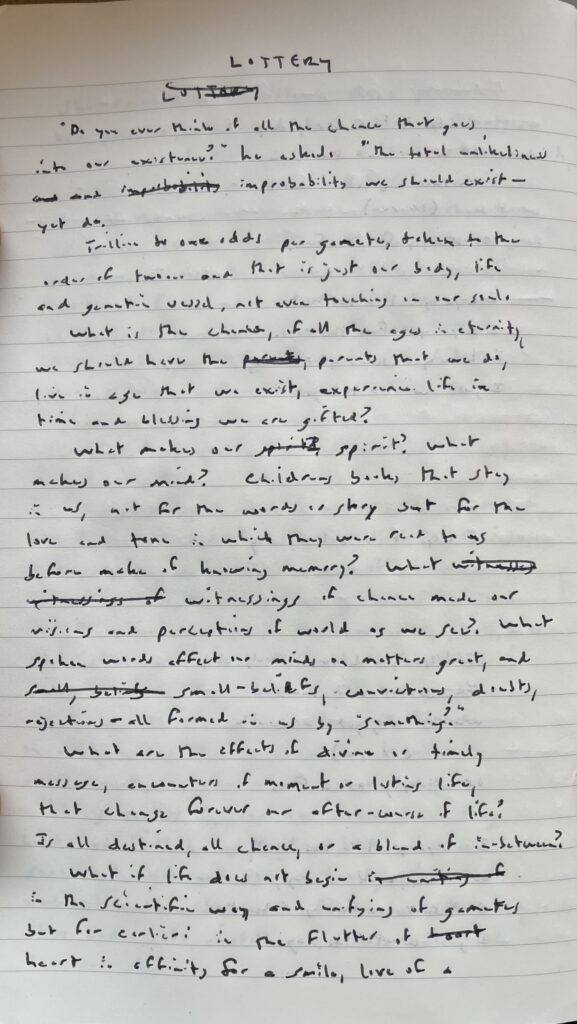 LOTTERY
"Do you ever think of all the chance that goes
into our existence?" he asked. "The total unlikeliness
and improbability we should exist—
yet do.
Trillion to one odds per gamete, taken to the
order of two... and that is just our body, life
and genetic vessel, not even touching on our soul.
What is the chance, of all the ages in eternity,
we should have the parents that we do,
live in age that we exist, experience life in
time and blessing we are gifted?
What makes our spirit? What
makes our mind? Childrens books that stay
in us, not for the words or story but for the
love and tone in which they were read to us
before make of knowing memory? What
witnessings of chance made our
visions and perceptions of world as we see? What
spoken words effect our minds on matters great, and
small—beliefs, convictions, doubts,
rejections—all formed in us by "something?"
What are the effects of divine or timely
message, encounters of moment or lasting life,
that change forever our after-course of life?
Is all destined, all chance, or a blend of in-between?
What if life does not begin
in the scientific way and unifying of gametes
but far earlier: in the flutter of
heart in affinity for a smile, love of a